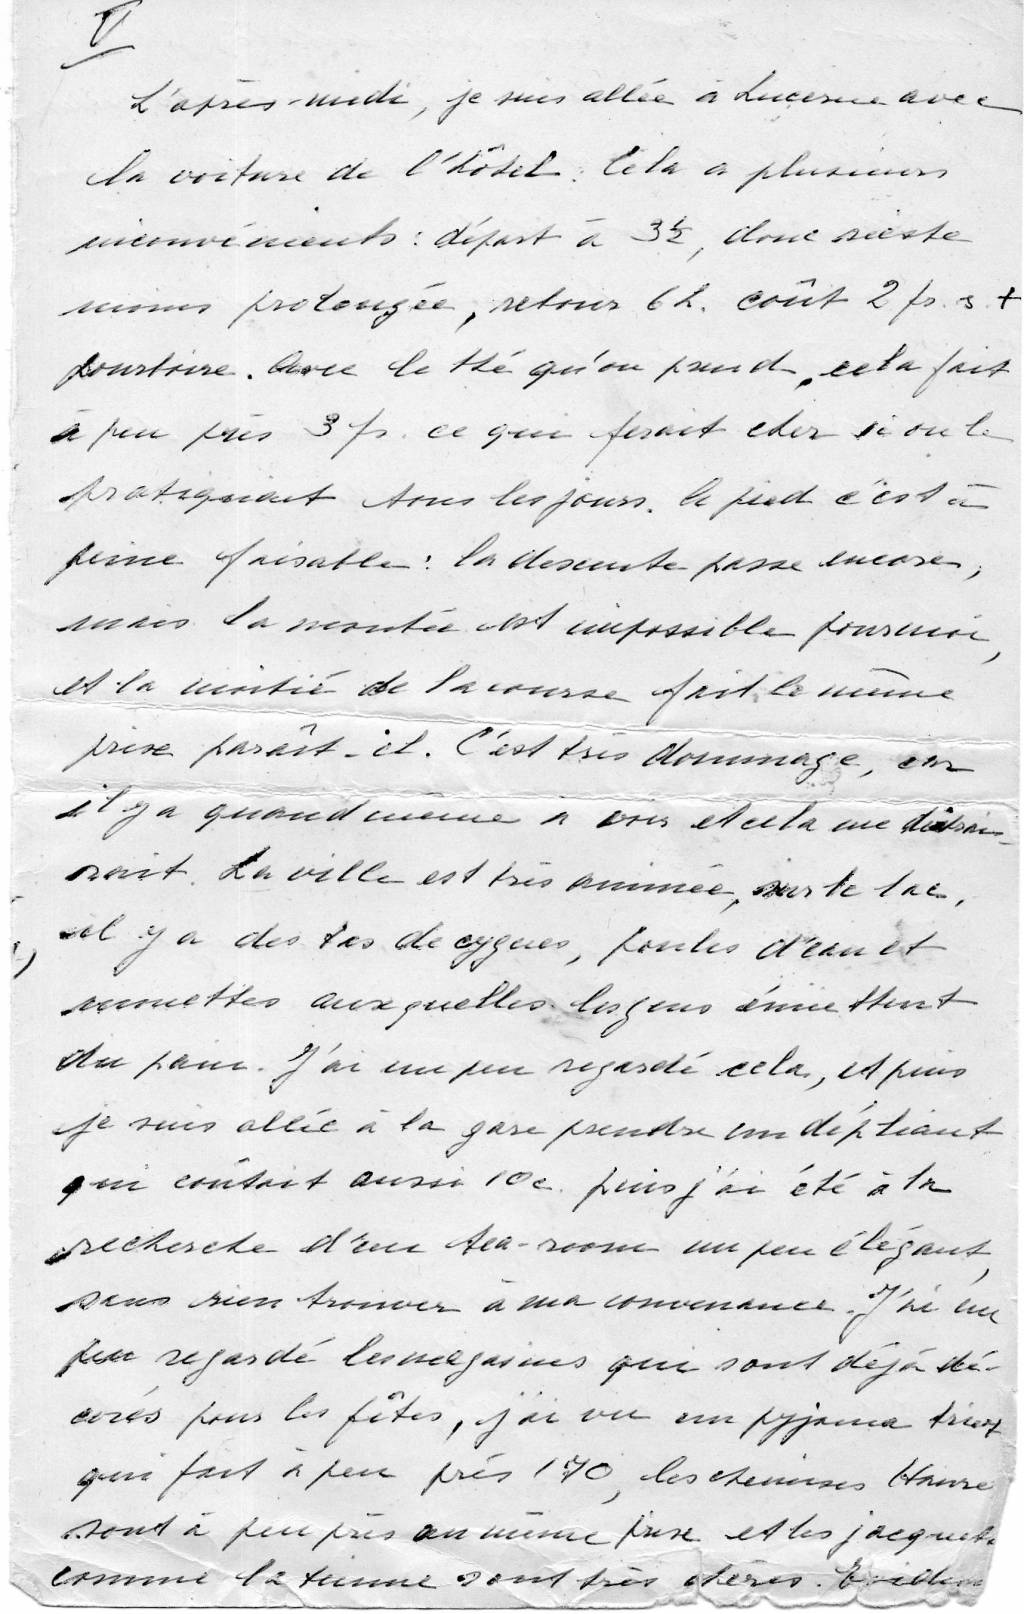 V
L'après-midi, je suis allée à Lucerne avec
la voiture de l'hôtel. Cela a plusieurs
inconvénients : départ à 3½, donc sieste
moins prolongée, retour 6 h. coût 2 fr. s. +
pourboire. Avec le thé qu'on prend, cela fait
à peu près 3 fr. ce qui ferait cher si on le
pratiquait tous les jours. à pied c'est à
peine faisable : la descente passe encore,
mais la montée est impossible pour moi,
et la moitié de la course fait le même
prix paraît-il. C'est très dommage, car
il y a quand même à voir et cela me distrai-
rait. La ville est très animée, sur le lac,
il y a des tas de cygnes, poules d'eau et
mouettes auxquelles les gens émiettent
du pain. J'ai un peu regardé cela, et puis
je suis allée à la gare prendre un dépliant
qui coûtait aussi 10 c. puis j'ai été à la
recherche d'un tea-room un peu élégant,
sans rien trouver à ma convenance. J'ai un
peu regardé les magasins qui sont déjà dé-
corés pour les fêtes, j'ai vu un pyjama tricot
qui fait à peu près 170, les chemises
sont à peu près au même prix et les jacquets
comme la tienne sont très chères.